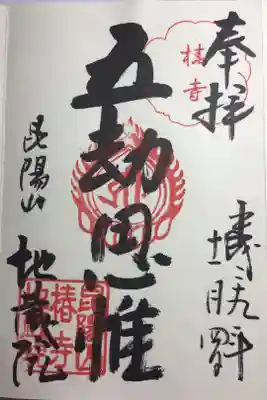 奉拝
椿寺
五劫思惟
昆陽山
地蔵院
昆陽山
椿寺
地蔵院